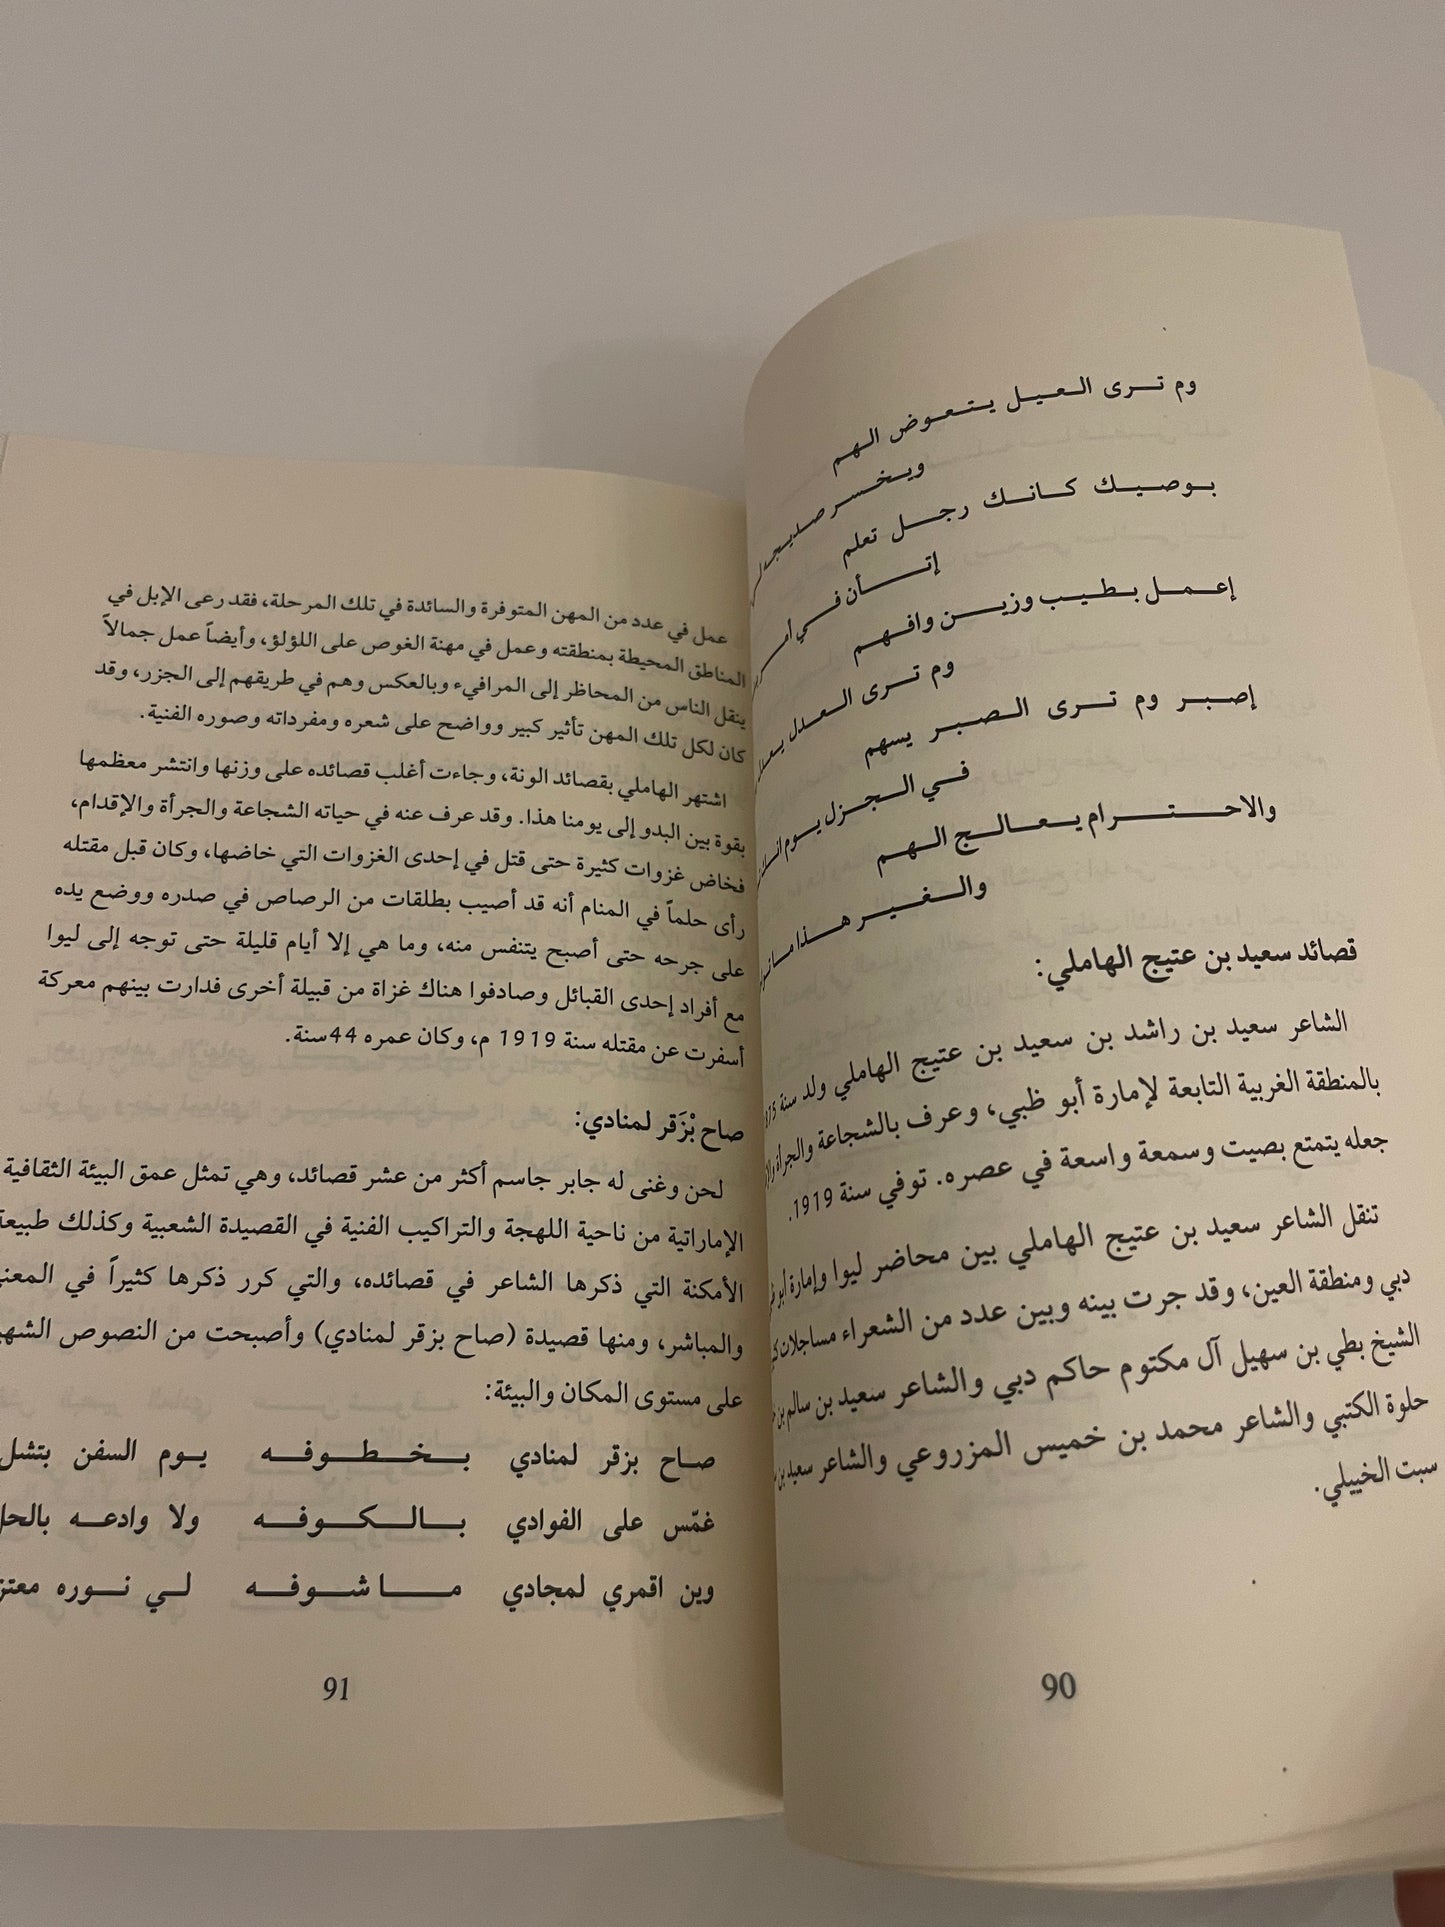 وم تـرى العيل يتعوض الهم
ويخسر صديجه
بوصيك كانك رجل تعلم
إتأن في
إعمل بطيب وزين وافهم
وم ترى العدل
إصبر وم ترى الصبر يسهم
في الجزل يوم
والاحترام يعالج الهم
والغير هذا
قصائد سعيد بن عتيج الهاملي:
الشاعر سعيد بن راشد بن سعيد بن عتيج الهاملي ولد سنة
بالمنطقة الغربية التابعة لإمارة أبو ظبي، وعرف بالشجاعة والجرأة
جعله يتمتع بصيت وسمعة واسعة في عصره. توفي سنة 1919.
تنقل الشاعر سعيد بن عتيج الهاملي بين محاضر ليوا وإمارة أبو
دبي ومنطقة العين، وقد جرت بينه وبين عدد من الشعراء مساجلات
الشيخ بطي بن سهيل آل مكتوم حاكم دبي والشاعر سعيد بن سالم بن
حلوة الكتبي والشاعر محمد بن خميس المزروعي والشاعر سعيد بن
سبت الخييلي.
90
عمل في عدد من المهن المتوفرة والسائدة في تلك المرحلة، فقد رعى الإبل في
المناطق المحيطة بمنطقته وعمل في مهنة الغوص على اللؤلؤ، وأيضاً عمل جمالاً
ينقل الناس من المحاظر إلى المرافيء وبالعكس وهم في طريقهم إلى الجزر، وقد
كان لكل تلك المهن تأثير كبير وواضح على شعره ومفرداته وصوره الفنية.
اشتهر الهاملي بقصائد الونة، وجاءت أغلب قصائده على وزنها وانتشر معظمها
بقوة بين البدو إلى يومنا هذا. وقد عرف عنه في حياته الشجاعة والجرأة والإقدام،
فخاض غزوات كثيرة حتى قتل في إحدى الغزوات التي خاضها، وكان قبل مقتله
رأى حلماً في المنام أنه قد أصيب بطلقات من الرصاص في صدره ووضع يده
على جرحه حتى أصبح يتنفس منه، وما هي إلا أيام قليلة حتى توجه إلى ليوا
مع أفراد إحدى القبائل وصادفوا هناك غزاة من قبيلة أخرى فدارت بينهم معركة
أسفرت عن مقتله سنة 1919 م، وكان عمره 44سنة.
صاح بْزَقر لمنادي:
لحن وغنى له جابر جاسم أكثر من عشر قصائد، وهي تمثل عمق البيئة الثقافية
الإماراتية من ناحية اللهجة والتراكيب الفنية في القصيدة الشعبية وكذلك طبيعة
الأمكنة التي ذكرها الشاعر في قصائده، والتي كرر ذكرها كثيراً في
والمباشر، ومنها قصيدة (صاح بزقر لمنادي) وأصبحت من النصوص
على مستوى المكان والبيئة:
صاح بزقر لمنادي بخطوفه يوم السفن
غمّس على الفوادي بالكوفه ولا وادعه
وين اقمري لمجادي ماشوفه لي نوره
91